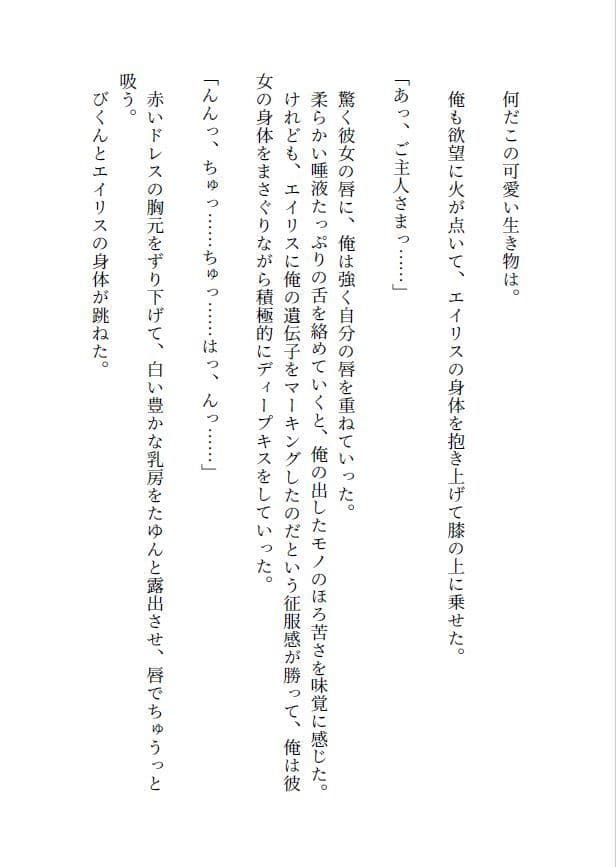 何だこの可愛い生き物は。
俺も欲望に火が点いて、エイリスの身体を抱き上げて膝の上に乗せた。
「あっ、ご主人さまっ……」
驚く彼女の唇に、俺は強く自分の唇を重ねていった。
柔らかい唾液たっぷりの舌を絡めていくと、俺の出したモノのほろ苦さを味覚に感じた。
けれども、エイリスに俺の遺伝子をマーキングしたのだという征服感が勝って、俺は彼
女の身体をまさぐりながら積極的にディープキスをしていった。
「んんっ、ちゅっ……ちゅっ……はっ、んっ……」
赤いドレスの胸元をずり下げて、白い豊かな乳房をたゆんと露出させ、唇でちゅうっと
吸う。
びくんとエイリスの身体が跳ねた。